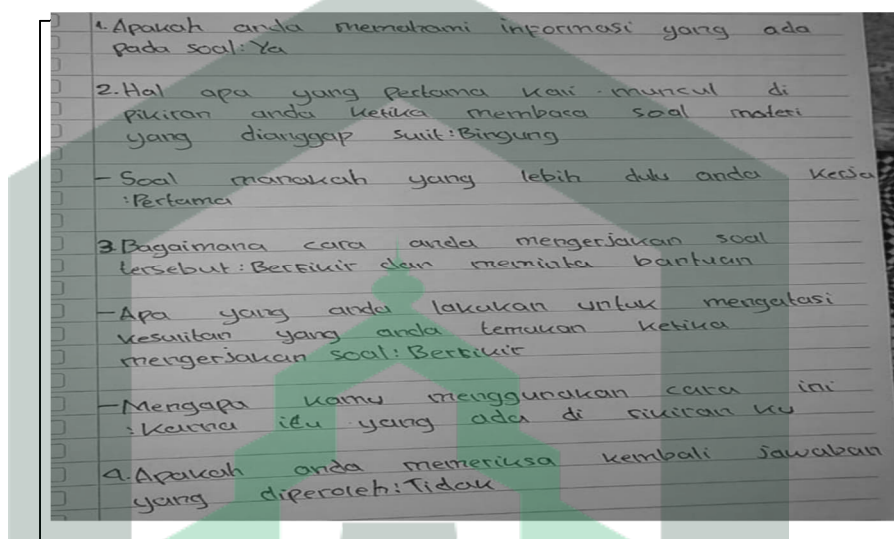 1. Apakah anda memahami informasi yang ada
pada soal: Ya
2. Hal apa yang Pertama kali muncul di
pikiran anda ketika membaca soal materi
yang dianggap sulit: Bingung
- Soal manakah yang lebih dulu anda kerja
: Pertama
3. Bagaimana cara anda mengerjakan soal
tersebut: Berfikir dan meminta bantuan
- Apa yang anda lakukan untuk mengatasi
kesulitan yang anda temukan ketika
mengerjakan soal: Berfikir
- Mengapa kamu menggunakan cara ini
: Karna itu yang ada di fikiran ku
4. Apakah anda memeriksa kembali jawaban
yang diperoleh: Tidak